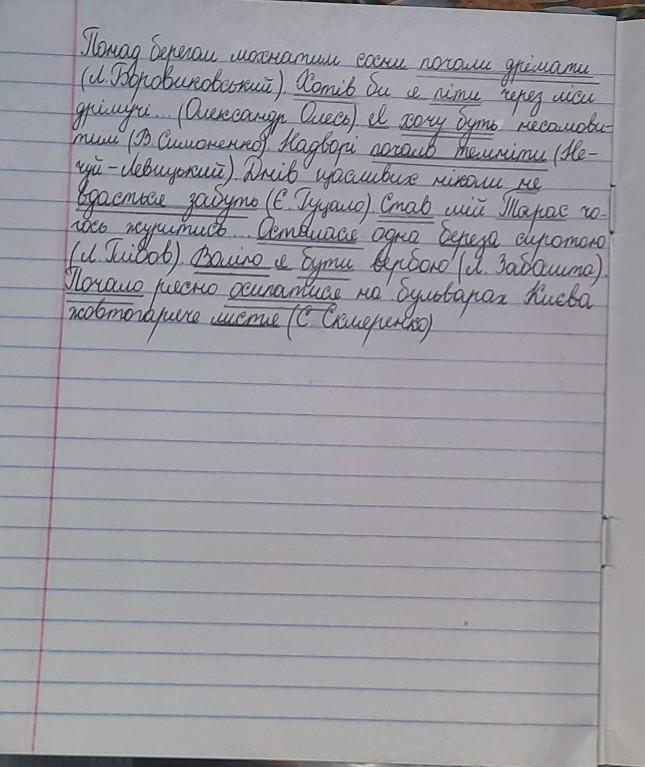 Понад берегам мохнатим сосни почали дрімати
(Л. Боровиковський). Хотів би я піти через ліси
дрімучі... (Олександр Олесь). Я хочу буть несамови-
тим (В. Симоненко). Надворі почало темніти (Не-
чуй-Левицький). Днів щасливих ніколи не
вдасться забуть (Є. Гуцало). Став мій Тарас чо-
гось журитись... Осталася одна береза сиротою
(Л. Глібов). Волію я бути вербою (Л. Забашта).
Почало рясно осипатися на бульварах Києва
жовтогаряче листя (С. Скляренко)